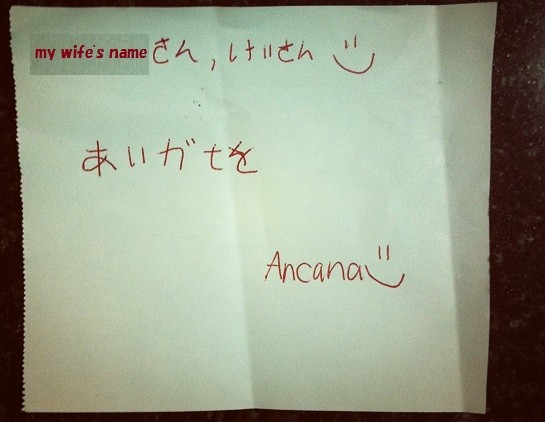 my wife's nameさん, けいさん
あいがとを
Ancana